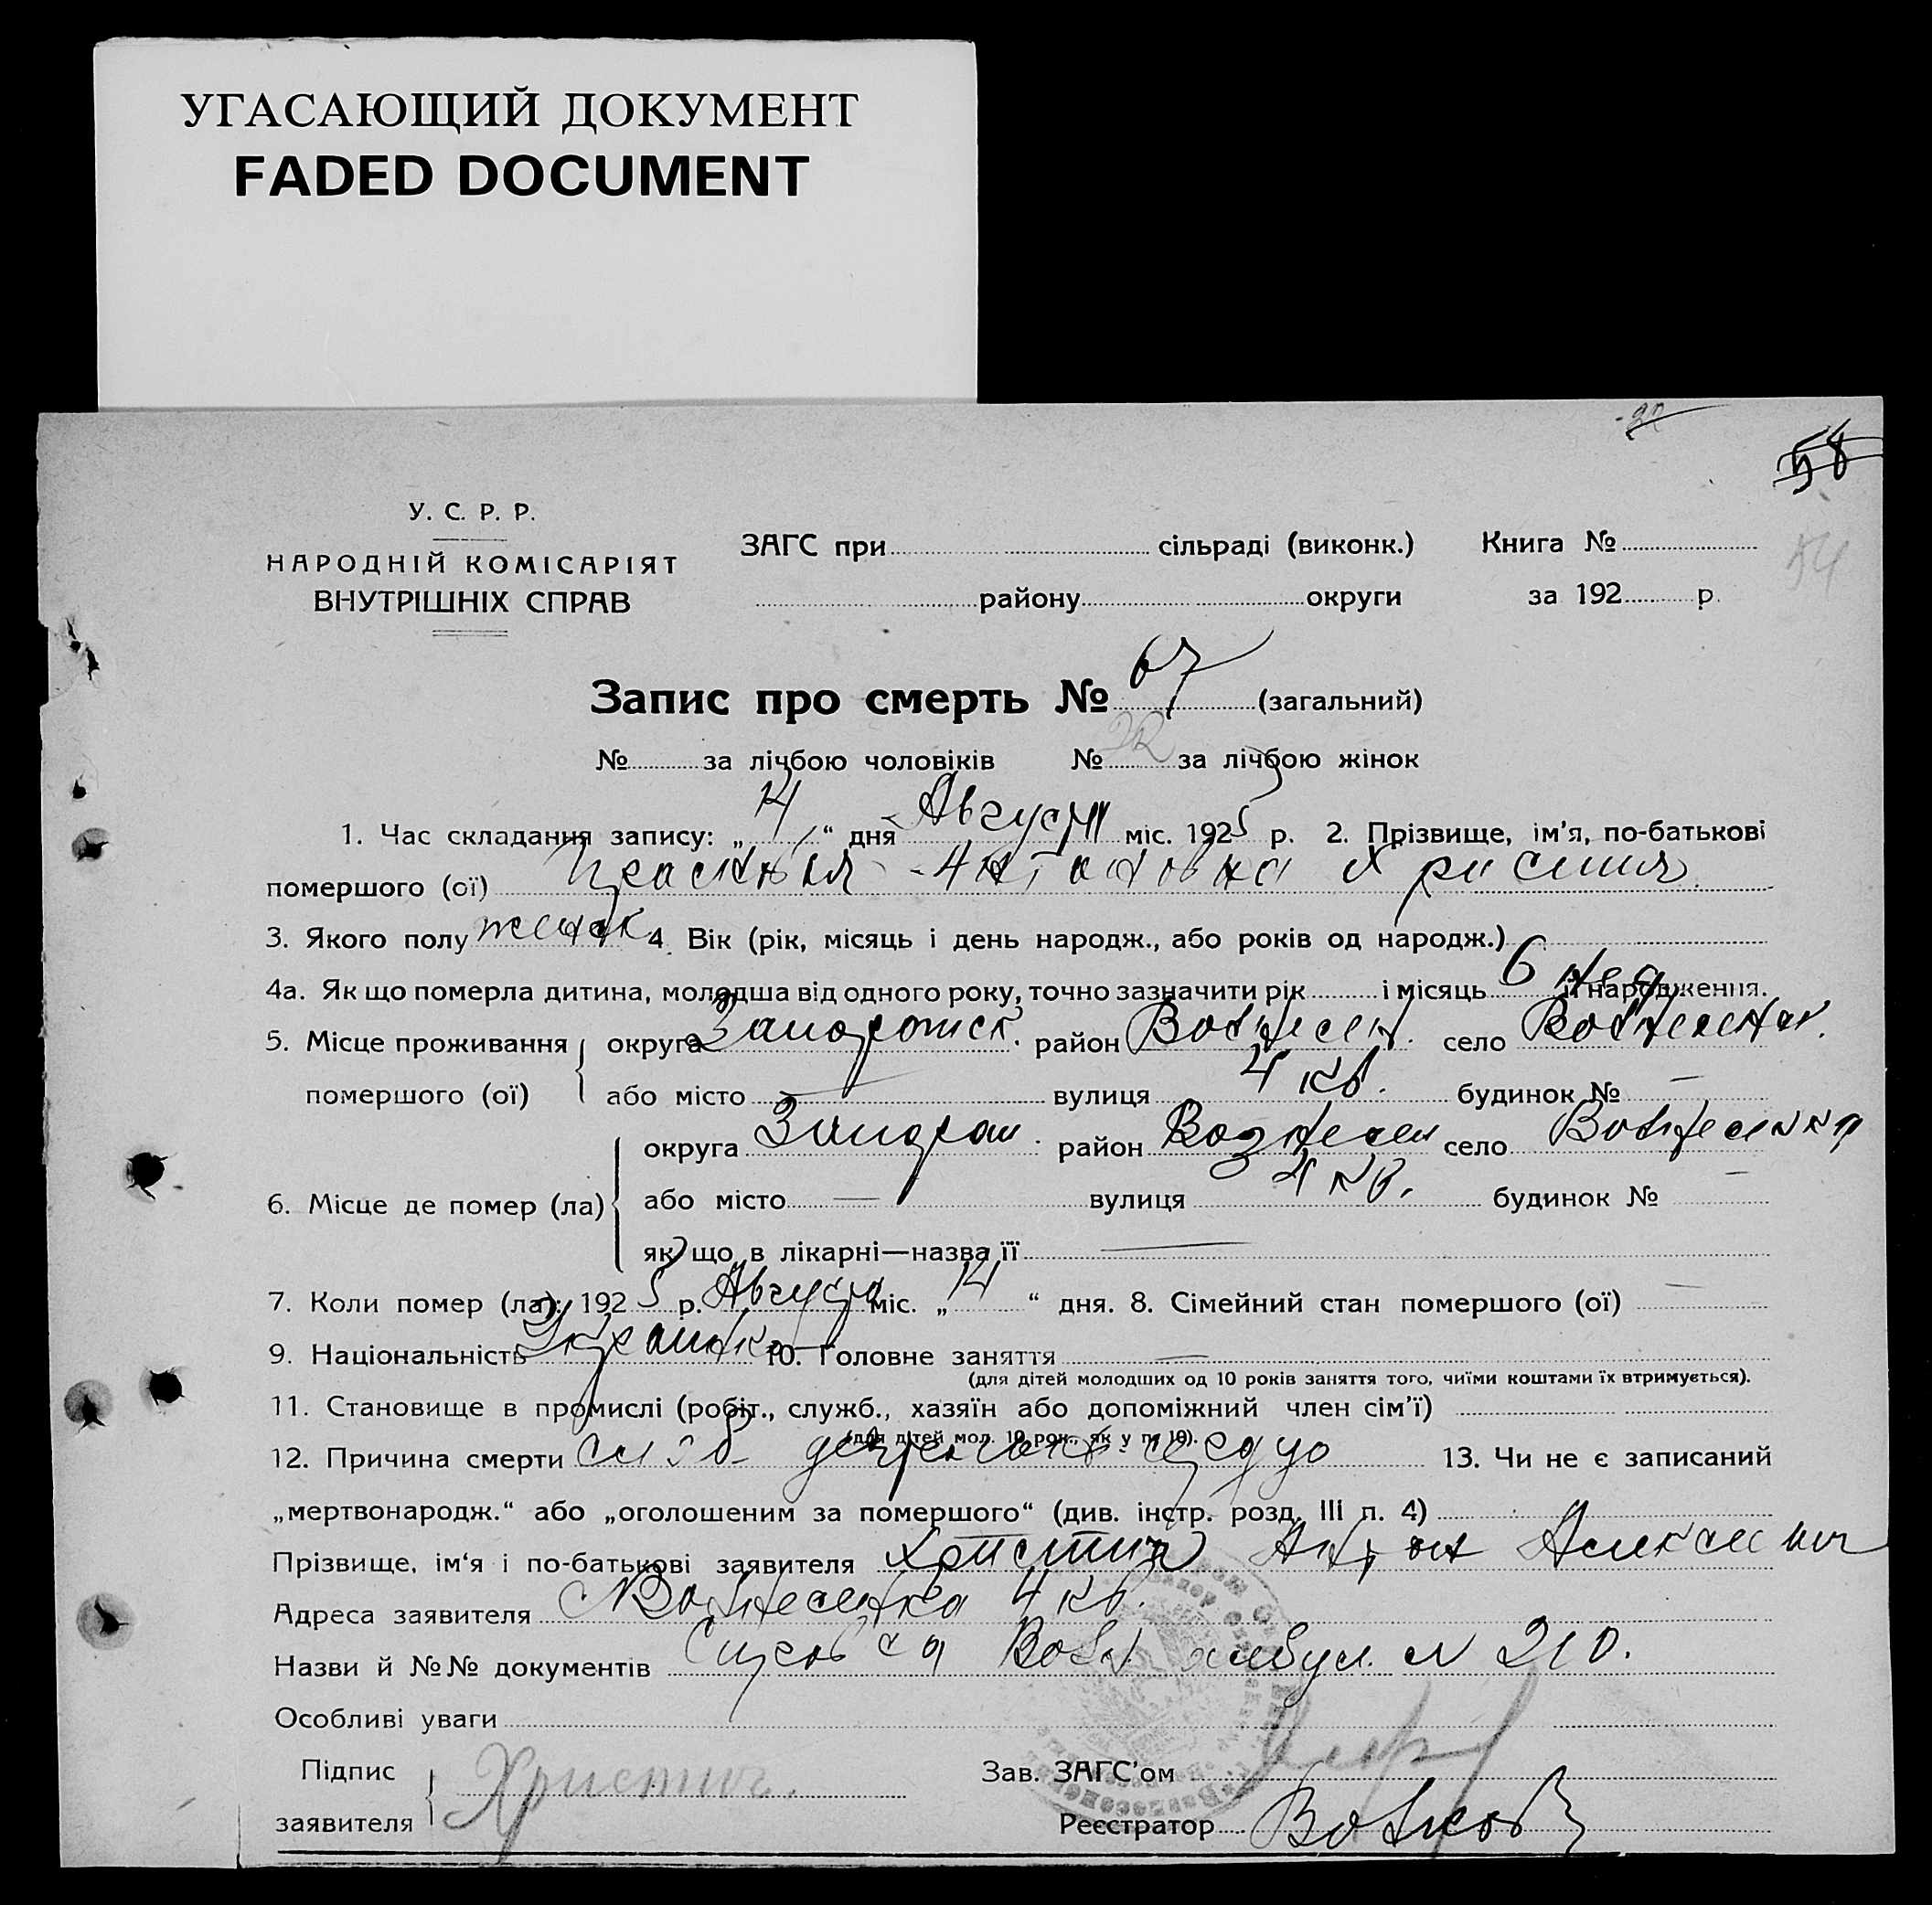 УГАСАЮЩИЙ ДОКУМЕНТ
FADED DOCUMENT
58
У. С. Р. Р.
НАРОДНІЙ КОМІСАРІЯТ
ВНУТРІШНІХ СПРАВ
ЗАГС при сільраді (виконк.) Книга №
району округи за 192 р.
54
Запис про смерть № 67 (загальний)
№ за лічбою чоловіків № 32 за лічбою жінок
1. Час складання запису: „14“ дня Августа міс. 1925 р. 2. Прізвище, ім’я, по-батькові
помершого (ої)
3. Якого полу женск 4. Вік (рік, місяць і день народж., або років од народж.)
4а. Як що померла дитина, молодша від одного року, точно зазначити рік і місяць 6 нед її народження.
5. Місце проживання округа Запорожск. район Вознесен. село Вознесенка.
помершого (ої) або місто — вулиця 4 кв. будинок № —
округа Запорож. район Вознесен село Вознесенка
6. Місце де помер (ла) або місто — вулиця 4 кв. будинок № —
як що в лікарні—назва її —
7. Коли помер (ла): 1925 р. Августа міс. „14“ дня. 8. Сімейний стан помершого (ої) —
9. Національність Украинка 10. Головне заняття —
(для дітей молодших од 10 років заняття того, чиїми коштами їх втримується).
11. Становище в промислі (робіт., служб., хазяїн або допоміжний член сім’ї)
(для дітей мол. 10 рок., як у п. 10).
12. Причина смерти 13. Чи не є записаний
„мертвонародж.“ або „оголошеним за помершого“ (див. інстр. розд. III п. 4)
Прізвище, ім‘я і по-батькові заявителя Христич Антон
Адреса заявителя Вознесенка 4 кв.
Назви й №№ документів Справка Возн амбул. № 210.
Особливі уваги
Підпис
заявителя Христич.
Зав. ЗАГС’ом
Реєстратор